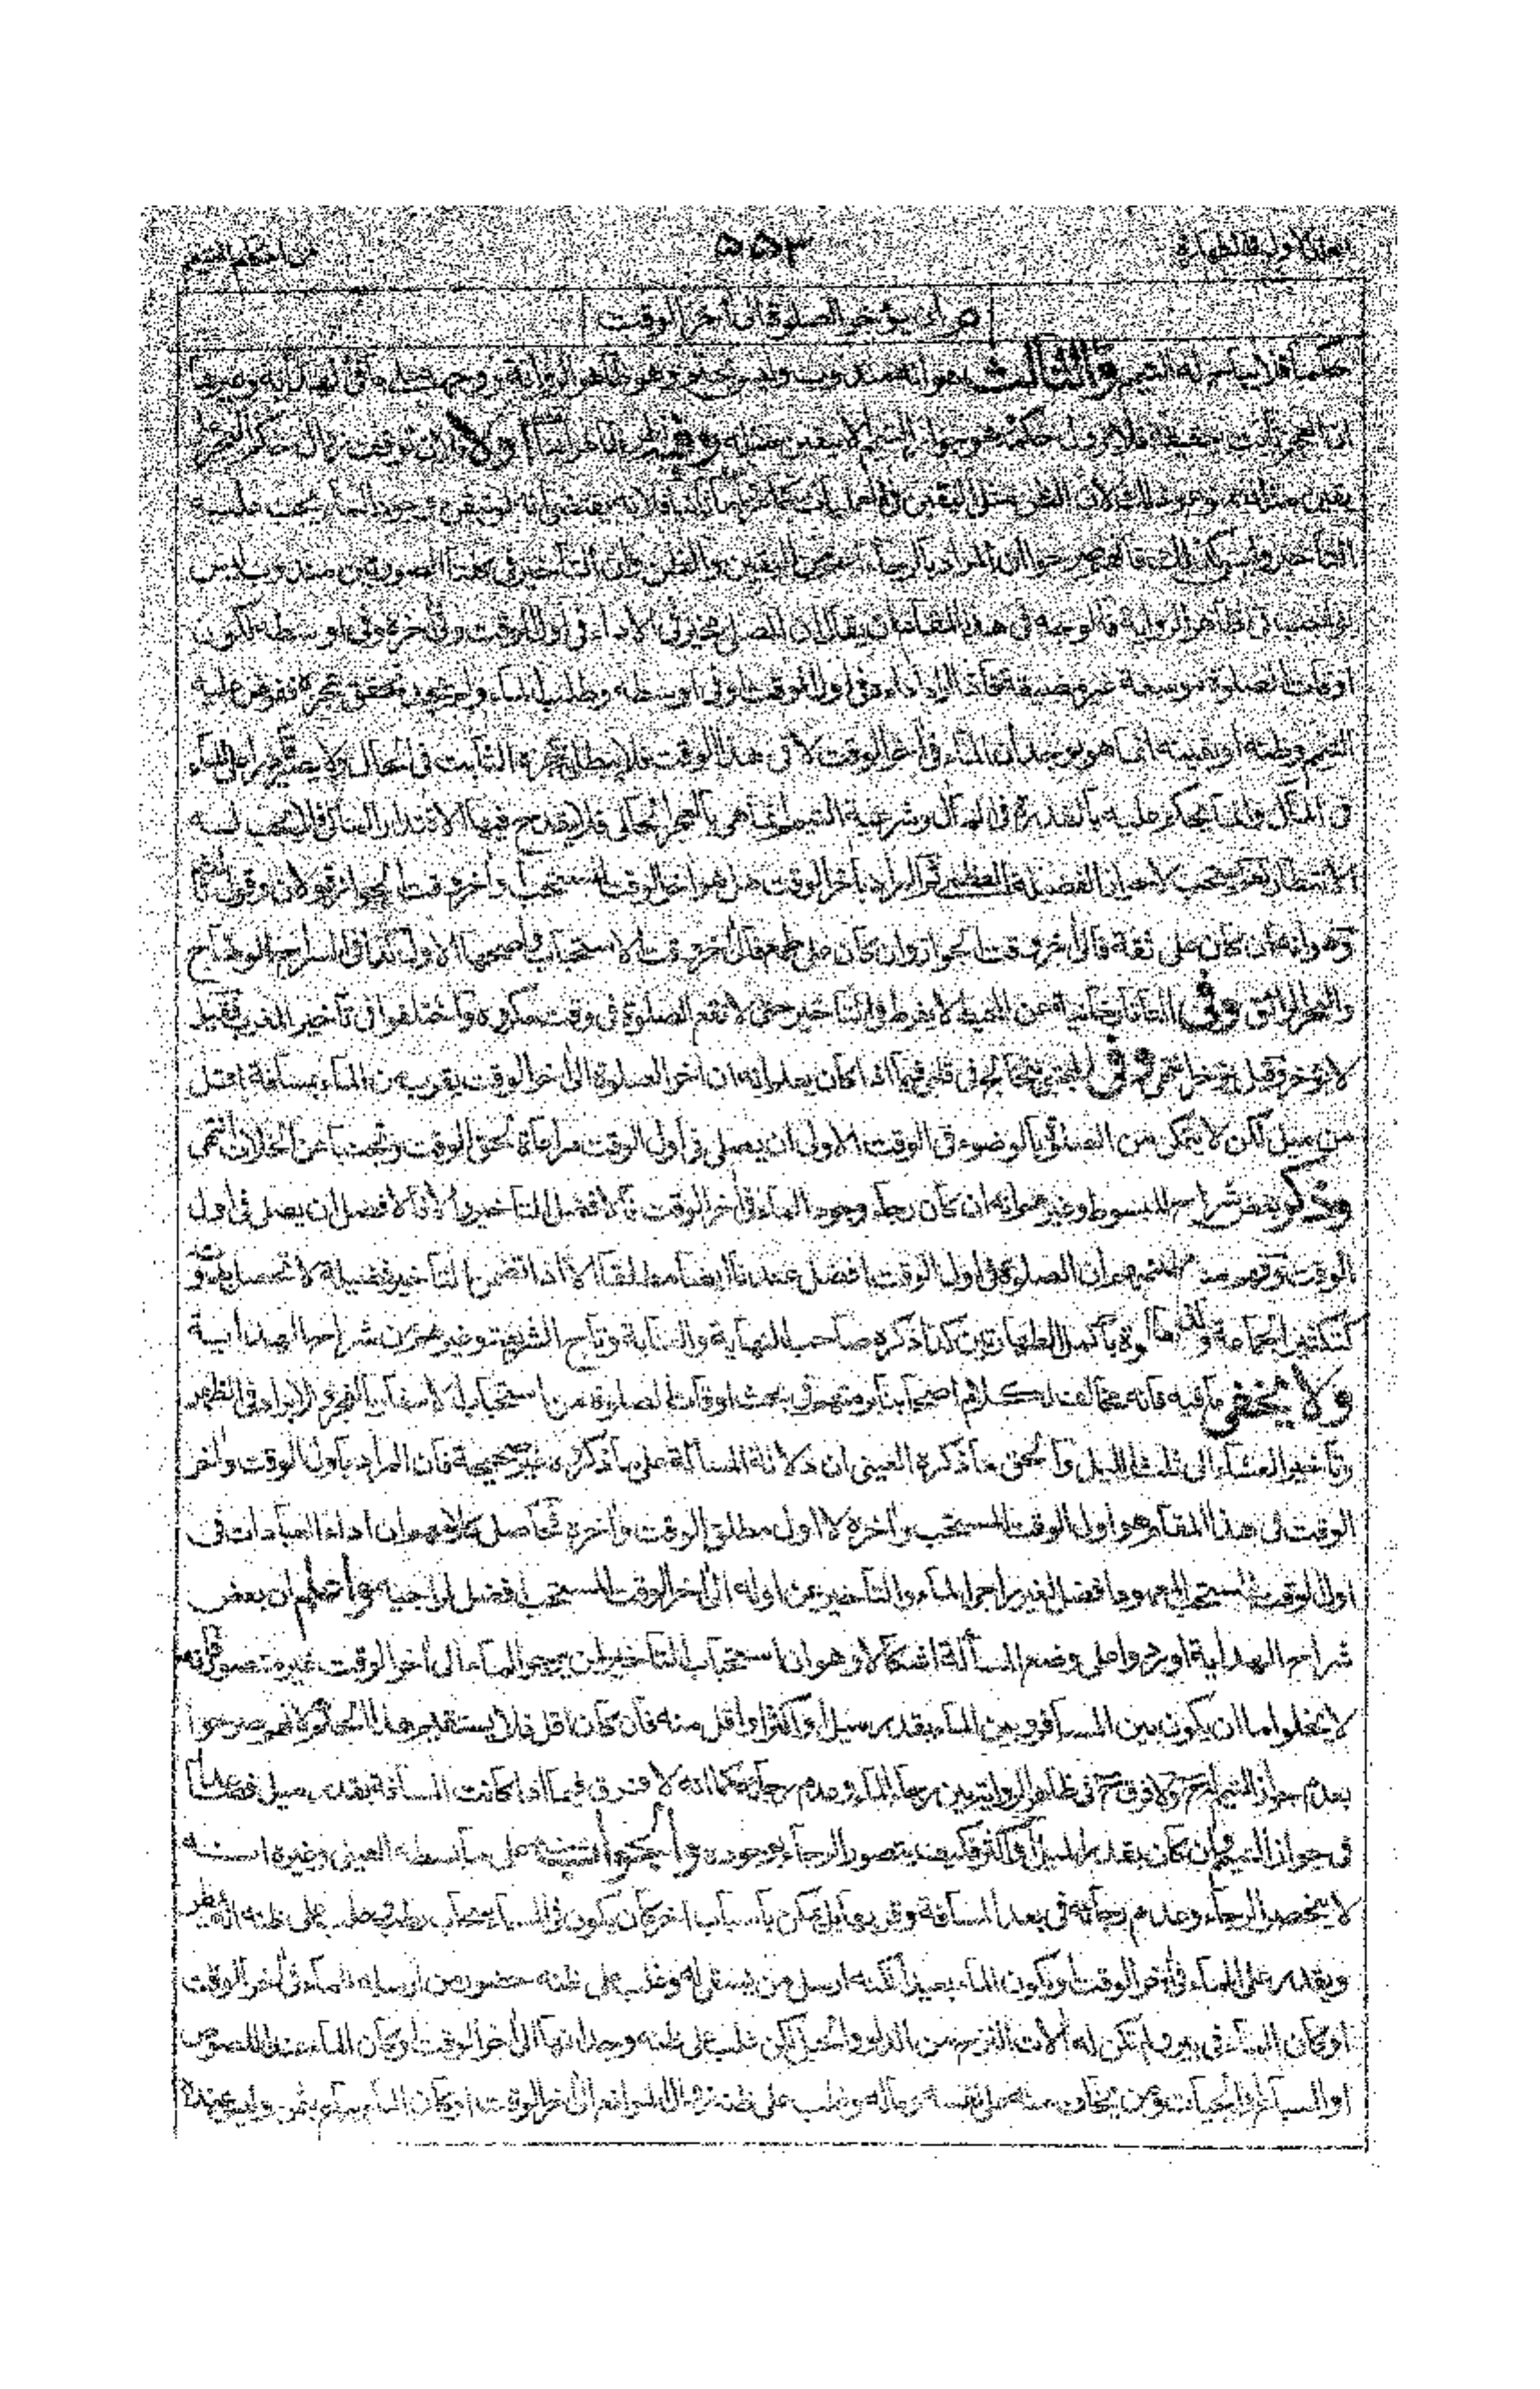 ۵۵۳
من احكام التيمم
ان يؤخر الصلوة الى آخر الوقت
حكمها فلا يباح له التيمم والثالث هو انه مندوب وليس بحتم وهو ظاهر الرواية ووجهه على ما فى الهداية وغيرها
ان العجز ثابت حقيقة فلا يزول حكمه وهو جواز التيمم الا بيقين مثله وفيه نظر ظاهر اما اولا فلان توقف زوال حكم العجز على
يقين مثله غير لان الظن مثل اليقين فى العمليات فلانه يقتضى انه لو تيقن وجود الماء يجب عليه
التأخير وليس كذلك فانهم صرحوا ان المراد بالرجاء اليقين والظن وان التأخير فى هاتين الصورتين مندوب ليس
بواجب فى ظاهر الرواية فالوجه فى هذا المقام ان يقال ان المصلى مخير فى الاداء فى اول الوقت وفى آخره وفى اوسطه لكون
اوقات الصلوة موسعة غير مضيقة فاذا اراد اداءه فى اول الوقت او فى اوسطه وطلب الماء ولم يجده تحقق عجزه ففرض عليه
التيمم وظنه او يقينه انما هو بوجدان الماء فى آخر الوقت لا فى هذا الوقت فلا يبطل عجزه الثابت فى الحال ولا يصير قادرا على الماء
فى المآل وانما يحكم عليه بالقدرة فى المآل وشرعية التيمم انما هى بالعجز الحالى فلا يقدح فيها الاقتدار المآلى فلا يجب عليه
الانتظار نعم يستحب لاحراز الفضيلة العظمى ثم المراد بآخر الوقت هل هو آخر الوقت المستحب او آخر وقت الجواز قولان وقول ثالث
وهو انه ان كان على ثقة فالى آخر وقت الجواز وان كان على طمع فالى آخر وقت الاستحباب واصحها الاول كذا فى السراج الوهاج
والبحر الرائق وفى التاتارخانية عن المحيط لا يفرط فى التأخير حتى لا تقع الصلوة فى وقت مكروه واختلفوا فى تأخير المغرب فقيل
لا يؤخر وقيل يؤخر انتهى وفى المجتبى ويتخالج فى قلبى فيما اذا كان يعلم انه ان اخر الصلوة الى آخر الوقت يقرب من الماء بمسافة اقل
من ميل لكن لا يتمكن من الصلوة بالوضوء فى الوقت الاولى ان يصلى فى اول الوقت مراعاة لحق الوقت وتجنبا عن الخلاف انتهى
وذكر بعض شراح المبسوط وغيره انه ان كان يرجو وجود الماء فى آخر الوقت فالافضل التأخير والا فالافضل ان يصلى فى اول
الوقت وفهم منه بعضهم ان الصلوة فى اول الوقت افضل عندنا ايضا مطلقا الا اذا تضمن التأخير فضيلة لا تحصل بدونه
كتكثير الجماعة والصلوة باكمل الطهارتين كذا ذكره صاحب النهاية والعناية وتاج الشريعة وغيرهم من شراح الهداية
ولا يخفى ما فيه فانه مخالف لكلام اصحابنا وتصريحهم فى بحث اوقات الصلوة من استحباب الاسفار بالفجر والابراد فى الظهر
وتأخير العشاء الى ثلث الليل والحق ما ذكره العينى ان دلالة المسألة على ما ذكره غير صحيحة فان المراد باول الوقت وآخر
الوقت فى هذا المقام هو اول الوقت المستحب وآخره لا اول مطلق الوقت وآخره فحاصل كلامهم ان اداء العبادات فى
اول الوقت المستحب افضل لغير راجى الماء والتأخير عن اوله الى آخر الوقت المستحب افضل لراجيه واعلم ان بعض
شراح الهداية اوردوا على وضع المسألة اشكالا وهو ان استحباب التأخير لمن يرجو الماء الى آخر الوقت غير متصور فانه
لا يخلو اما ان يكون بين المسافر وبين الماء بقدر ميل او اكثر او اقل منه فان كان اقل فلا يستقيم هذا الحكم لانهم صرحوا
بعدم جواز التيمم ح ولا فرق ح فى ظاهر الرواية بين رجاء الماء وعدم رجائه كما انه لا فرق فيما اذا كانت المسافة بقدر ميل فصاعدا
فى جواز التيمم وان كان بقدر الميل او اكثر فكيف يتصور الرجاء بوجوده والجواب عنه على ما بسطه العينى وغيره انه
لا ينحصر الرجاء وعدم رجائه فى بعد المسافة وقربها بل يمكن باسباب اخر كأن يكون فى السماء سحاب رطب وغلب على ظنه انه يمطر
ويقدر على الماء فى آخر الوقت او يكون الماء بعيدا لكنه ارسل من يستقى له وغلب على ظنه حضور من ارسله للماء فى آخر الوقت
او كان الماء فى بير ولم تكن له آلات النزح من الدلو والحبل لكن غلب على ظنه وجدانها الى آخر الوقت او كان الماء عند اللصوص
او السباع او الحيات ومن يخاف منه على نفسه وماله وغلب على ظنه زوال الموانع الى آخر الوقت او كان الماء يباع بثمن وليس عنده